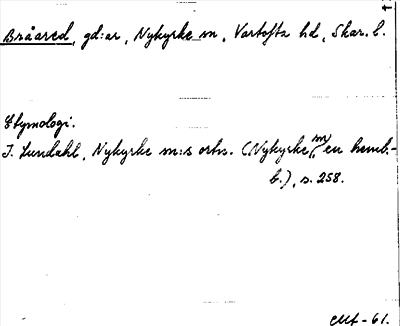 Bråared, gd:ar, Nykyrke sn, Vartofta hd, Skar. l.
Etymologi.
I. Lundahl, Nykyrke sn:s ortn. (Nykyrke sn, en hemb.-
b.), s. 258.
CMt-61.